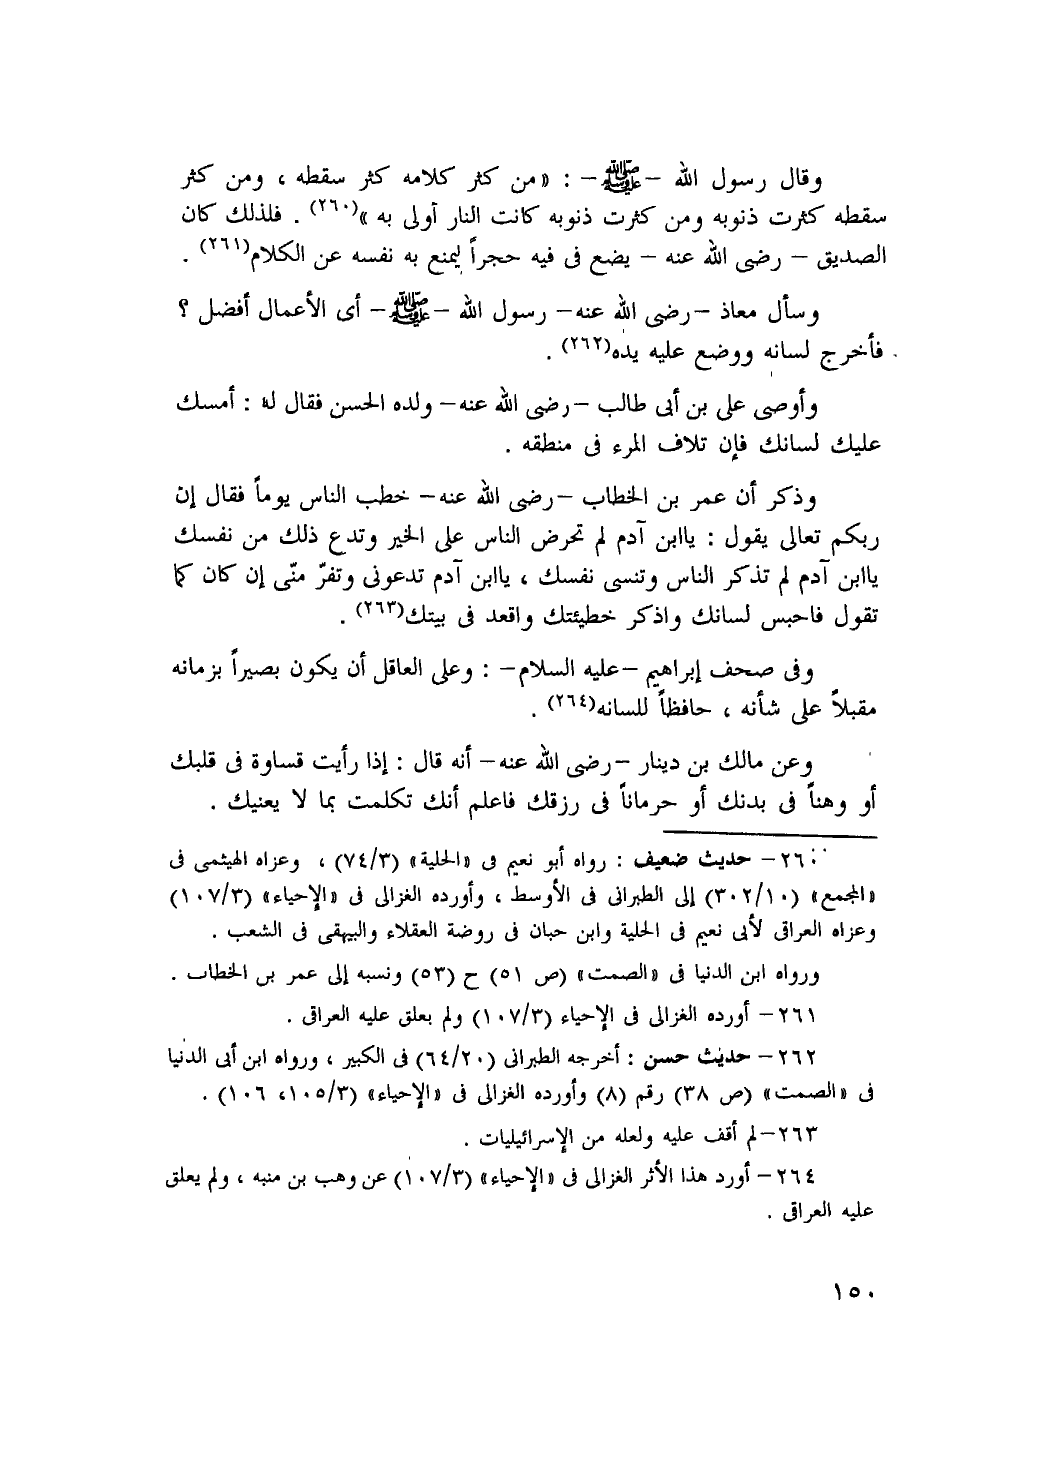 وقال رسول الله –ﷺ– : «من كثر كلامه كثر سقطه ، ومن كثر
سقطه كثرت ذنوبه ومن كثرت ذنوبه كانت النار أولى به»(٢٦٠) . فلذلك كان
الصديق – رضى الله عنه – يضع فى فيه حجراً ليمنع به نفسه عن الكلام(٢٦١) .
وسأل معاذ –رضى الله عنه– رسول الله –ﷺ– أى الأعمال أفضل ؟
فأخرج لسانه ووضع عليه يده(٢٦٢) .
وأوصى على بن أبى طالب –رضى الله عنه– ولده الحسن فقال له : أمسك
عليك لسانك فإن تلاف المرء فى منطقه .
وذكر أن عمر بن الخطاب –رضى الله عنه– خطب الناس يوماً فقال إن
ربكم تعالى يقول : ياابن آدم لم تحرض الناس على الخير وتدع ذلك من نفسك
ياابن آدم لم تذكر الناس وتنسى نفسك ، ياابن آدم تدعونى وتفرّ منّى إن كان كما
تقول فاحبس لسانك واذكر خطيئتك واقعد فى بيتك(٢٦٣) .
وفى صحف إبراهيم –عليه السلام– : وعلى العاقل أن يكون بصيراً بزمانه
مقبلاً على شأنه ، حافظاً للسانه(٢٦٤) .
وعن مالك بن دينار –رضى الله عنه– أنه قال : إذا رأيت قساوة فى قلبك
أو وهناً فى بدنك أو حرماناً فى رزقك فاعلم أنك تكلمت بما لا يعنيك .
٢٦٠– حديث ضعيف : رواه أبو نعيم فى «الحلية» (٧٤/٣) ، وعزاه الهيثمى فى
«المجمع» (٣٠٢/١٠) إلى الطبرانى فى الأوسط ، وأورده الغزالى فى «الإحياء» (١٠٧/٣)
وعزاه العراقى لأبى نعيم فى الحلية وابن حبان فى روضة العقلاء والبيهقى فى الشعب .
ورواه ابن الدنيا فى «الصمت» (ص ٥١) ح (٥٣) ونسبه إلى عمر بن الخطاب .
٢٦١– أورده الغزالى فى الإحياء (١٠٧/٣) ولم يعلق عليه العراقى .
٢٦٢– حديث حسن : أخرجه الطبرانى (٦٤/٢٠) فى الكبير ، ورواه ابن أبى الدنيا
فى «الصمت» (ص ٣٨) رقم (٨) وأورده الغزالى فى «الإحياء» (١٠٥/٣، ١٠٦) .
٢٦٣–لم أقف عليه ولعله من الإسرائيليات .
٢٦٤– أورد هذا الأثر الغزالى فى «الإحياء» (١٠٧/٣) عن وهب بن منبه ، ولم يعلق
عليه العراقى .
١٥٠